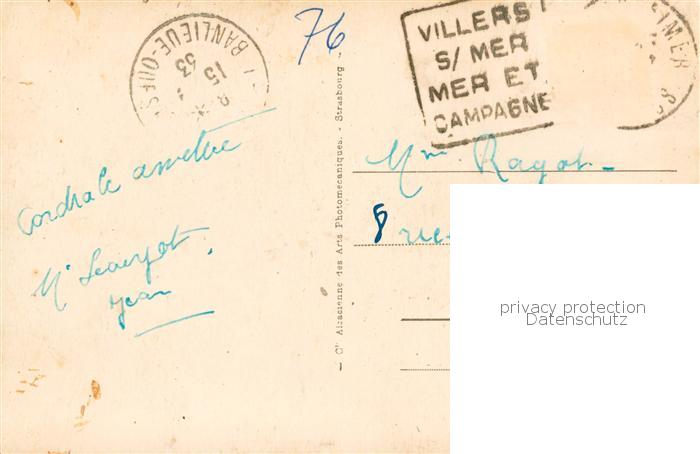 76
BANLIEUE-OUES
15
53
VILLERS
S/ MER
MER ET
CAMPAGNE
S/MER
Cordiale
Jean
Cie Alsacienne des Arts Photomécaniques. - Strasbourg
Mme Ragot
8 rue
privacy protection
Datenschutz